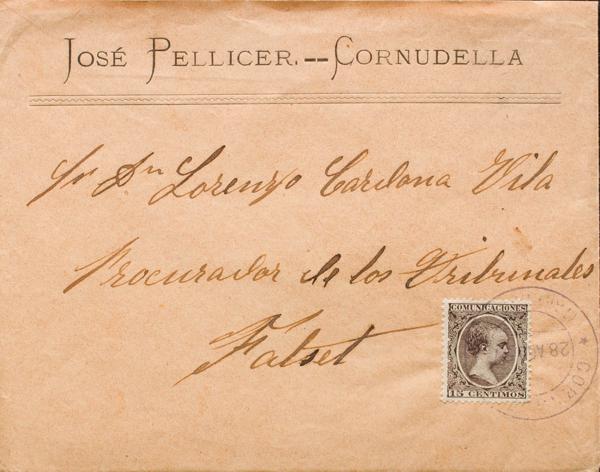 JOSÉ PELLICER.--CORNUDELLA
Sr Dn Lorenzo Cardona Vila
Procurador de los Tribunales
Falset
COMUNICACIONES
15 CENTIMOS
28 AG
COR